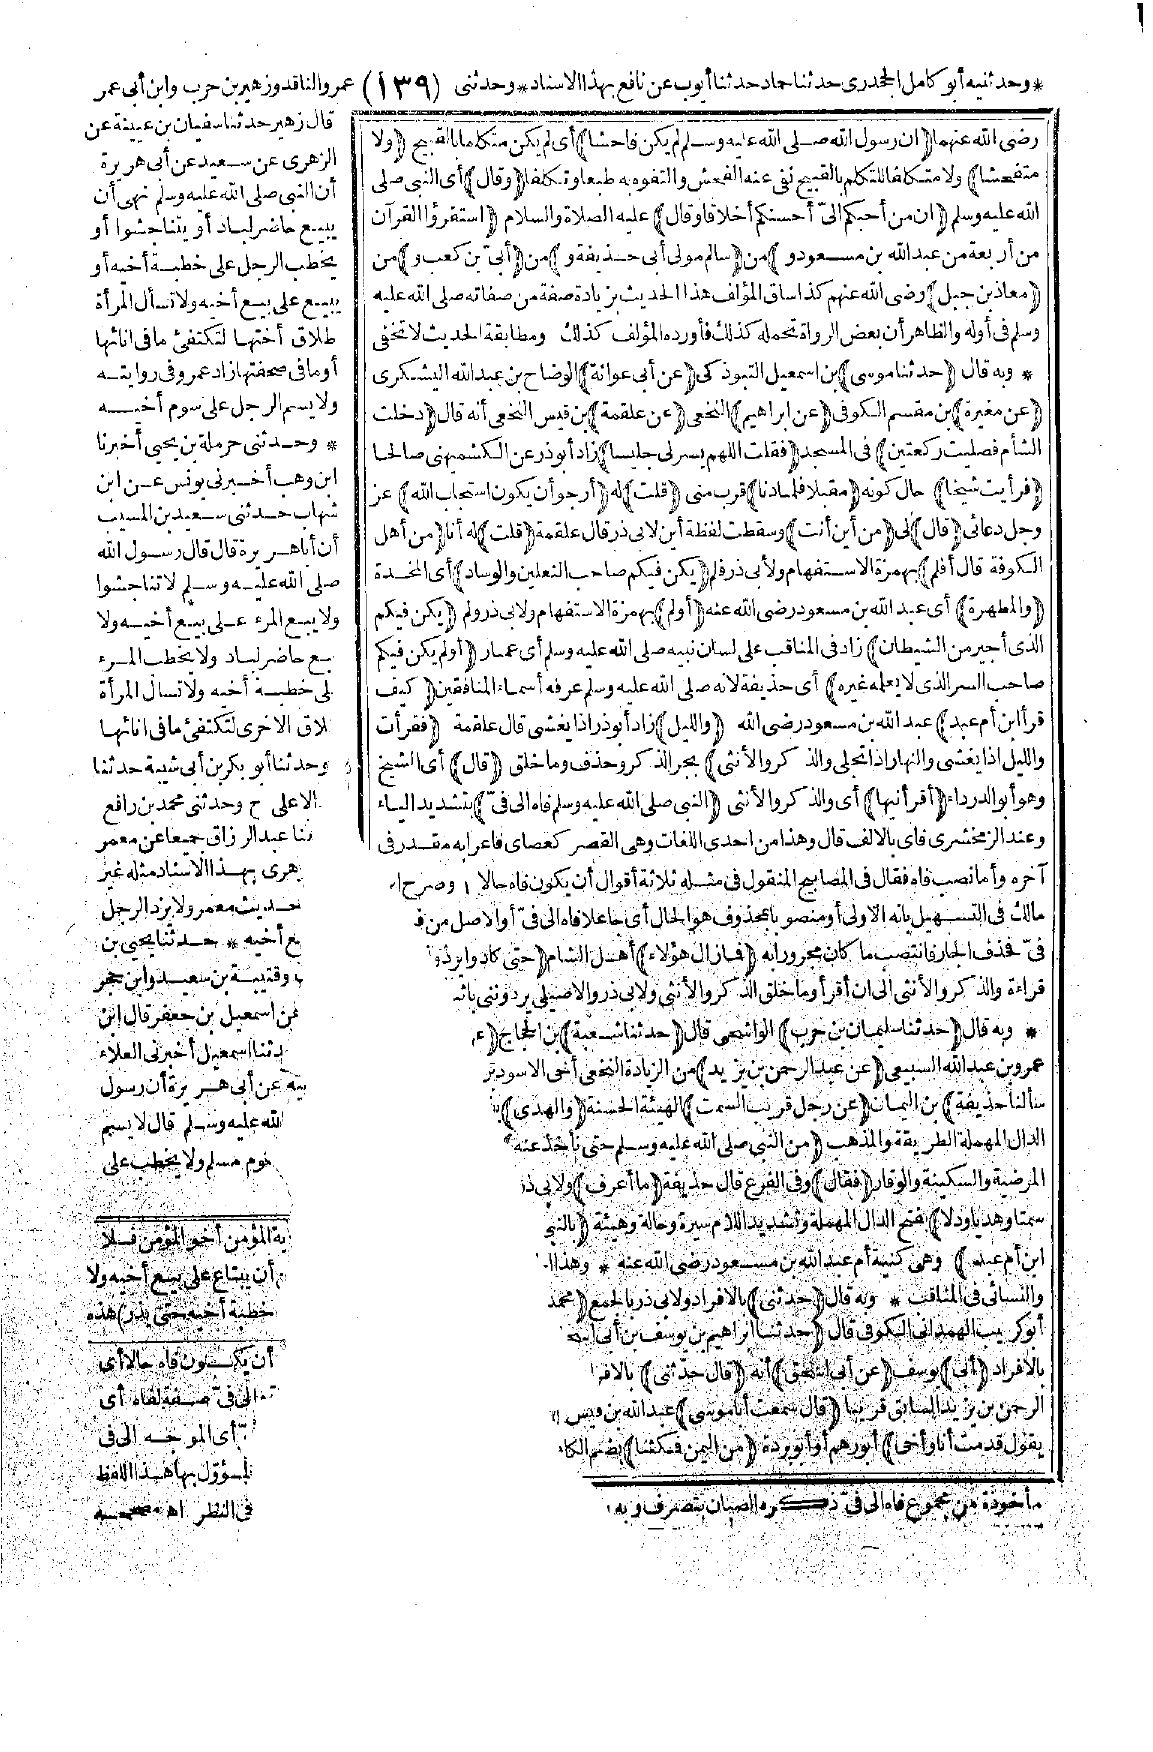 * وحدثنيه أبو كامل الجحدرى حدثنا حماد حدثنا أيوب عن نافع بهذا الاسناد * وحدثنى (١٣٩) عمرو الناقد وزهير بن حرب وابن أبى عمر
رضى الله عنهما (ان رسول الله صلى الله عليه وسلم لم يكن فاحشا) أى لم يكن متكلما بالقبيح (ولا
متفحشا) ولا متكلفا للتكلم بالقبيح نفى عنه الفحش والتفوه به طبعا وتكلفا (وقال) أى النبى صلى
الله عليه وسلم (ان من أحبكم الىّ أحسنكم أخلاقا وقال) عليه الصلاة والسلام (استقرؤا القرآن
من أربعة من عبد الله بن مسعود و) من (سالم مولى أبى حذيفة و) من (أبىّ بن كعب و) من
(معاذ بن جبل) رضى الله عنهم كذا ساق المؤلف هذا الحديث بزيادة صفة من صفاته صلى الله عليه
وسلم فى أوله والظاهر أن بعض الرواة تحمله كذلك فأورده المؤلف كذلك ومطابقة الحديث لا تخفى
* وبه قال (حدثنا موسى) بن اسمعيل التبوذكى (عن أبى عوانة) الوضاح بن عبد الله اليشكرى
(عن مغيرة) بن مقسم الكوفى (عن ابراهيم) النخعى (عن علقمة) بن قيس النخعى أنه قال (دخلت
الشأم فصليت ركعتين) فى المسجد (فقلت اللهم يسر لى جليسا) زاد أبو ذر عن الكشميهنى صالحا
(فرأيت شيخا) حال كونه (مقبلا فلما دنا) قرب منى (قلت) له (أرجو أن يكون استجاب الله) عز
وجل دعائى (قال) لى (من أين أنت) وسقطت لفظة أين لابى ذر قال علقمة (قلت) له أنا (من أهل
الكوفة قال أفلم) بهمزة الاستفهام ولأبى ذر فلم (يكن فيكم صاحب النعلين والوساد) أى المخدة
(والمطهرة) أى عبد الله بن مسعود رضى الله عنه (أولم) بهمزة الاستفهام ولابى ذر ولم (يكن فيكم
الذى أجير من الشيطان) زاد فى المناقب على لسان نبيه صلى الله عليه وسلم أى عمار (أولم يكن فيكم
صاحب السر الذى لا يعلمه غيره) أى حذيفة لانه صلى الله عليه وسلم عرفه أسماء المنافقين (كيف
قرأ ابن أم عبد) عبد الله بن مسعود رضى الله (والليل) زاد أبو ذر اذا يغشى قال علقمة (فقرأت
والليل اذا يغشى والنهار اذا تجلى والذكر والأنثى) بجر الذكر وحذف وما خلق (قال) أى الشيخ
وهو أبو الدرداء (أقرأنيها) أى والذكر والأنثى (النبى صلى الله عليه وسلم فاه الى فىّ) بتشديد الياء
وعند الزمخشرى فاى بالالف قال وهذا من احدى اللغات وهى القصر كعصاى فاعرابه مقدر فى
آخره وأما نصب فاه فقال فى المصابيح المنقول فى مثله ثلاثة أقوال أن يكون فاه حالا ١ وصرح
مالك فى التسهيل بانه الاولى أو منصوبا بمحذوف هو الحال أى جاعلا فاه الى فىّ أو الاصل من
فىّ فحذف الجار فانتصب ما كان مجرورا به (فما زال هؤلاء) أهل الشام (حتى كادوا يردو
قراءة والذكر والأنثى الى ان أقرأ وما خلق الذكر والأنثى ولابى ذر والاصيلى يردوننى
* وبه قال (حدثنا سليمان بن حرب) الواشحى قال (حدثنا شعبة) بن الحجاج
عمرو بن عبد الله السبيعى (عن عبد الرحمن بن يزيد) من الزيادة النخعى أخى الاسود
سألنا حذيفة) بن اليمان (عن رجل قريب السمت) الهيئة الحسنة (والهدى)
الدال المهملة الطريقة والمذهب (من النبى صلى الله عليه وسلم حتى نأخذ عنه
المرضية والسكينة والوقار (فقال) وفى الفرع قال حذيفة (ما أعرف) ولابى
سمتا وهديا ودلا) بفتح الدال المهملة وتشديد اللام سيرة وحالة وهيئة (بالنبى
ابن أم عبد) وهى كنية أم عبد الله بن مسعود رضى الله عنه * وهذا
والنسائى فى المناقب * وبه قال (حدثنى) بالافراد ولابى ذر بالجمع (محمد
أبو كريب الهمدانى الكوفى قال (حدثنا ابراهيم بن يوسف بن أبى
بالافراد (أبى) يوسف (عن أبى اسحق) أنه (قال حدثنى)
الرحمن بن يزيد السابق قريبا (قال سمعت أبا موسى) عبد الله بن قيس
يقول قدمت أنا وأخى) أبو رهم أو أبو بردة (من اليمن فمكثنا) بضم
مأخوذة من مجموع فاه الى فىّ ذكره الصبان بتصرف وبه
قال زهير حدثنا سفيان بن عيينة عن
الزهرى عن سعيد عن أبى هريرة
أن النبى صلى الله عليه وسلم نهى أن
يبيع حاضر لباد أو يتناجشوا أو
يخطب الرجل على خطبة أخيه أو
يبيع على بيع أخيه ولا تسأل المرأة
طلاق أختها لتكتفئ ما فى انائها
أو ما فى صحفتها زاد عمرو فى روايته
ولا يسم الرجل على سوم أخيه
* وحدثنى حرملة بن يحيى أخبرنا
ابن وهب أخبرنى يونس عن ابن
شهاب حدثنى سعيد بن المسيب
أن أبا هريرة قال قال رسول الله
صلى الله عليه وسلم لا تناجشوا
ولا يبع المرء على بيع أخيه ولا
بع حاضر لباد ولا يخطب المرء
لى خطبة أخيه ولا تسال المرأة
لاق الاخرى لتكتفئ ما فى انائها
وحدثنا أبو بكر بن أبى شيبة حدثنا
الاعلى ح وحدثنى محمد بن رافع
ثنا عبد الرزاق جميعا عن معمر
هرى بهذا الاسناد مثله غير
حديث معمر ولا يزد الرجل
بع أخيه * حدثنا يحيى بن
وقتيبة بن سعيد وابن حجر
عن اسمعيل بن جعفر قال ابن
دثنا اسمعيل أخبرنى العلاء
بيه عن أبى هريرة أن رسول
الله عليه وسلم قال لا يسم
وم مسلم ولا يخطب على
ية المؤمن أخو المؤمن فلا
أن يبتاع على بيع أخيه ولا
خطبة أخيه حتى يذر) هذه
أن يكون فاه حالا أى
الى فىّ صفة لفاه أى
أى الموجه الى فى
بها هذا اللفظ
فى النظر اه